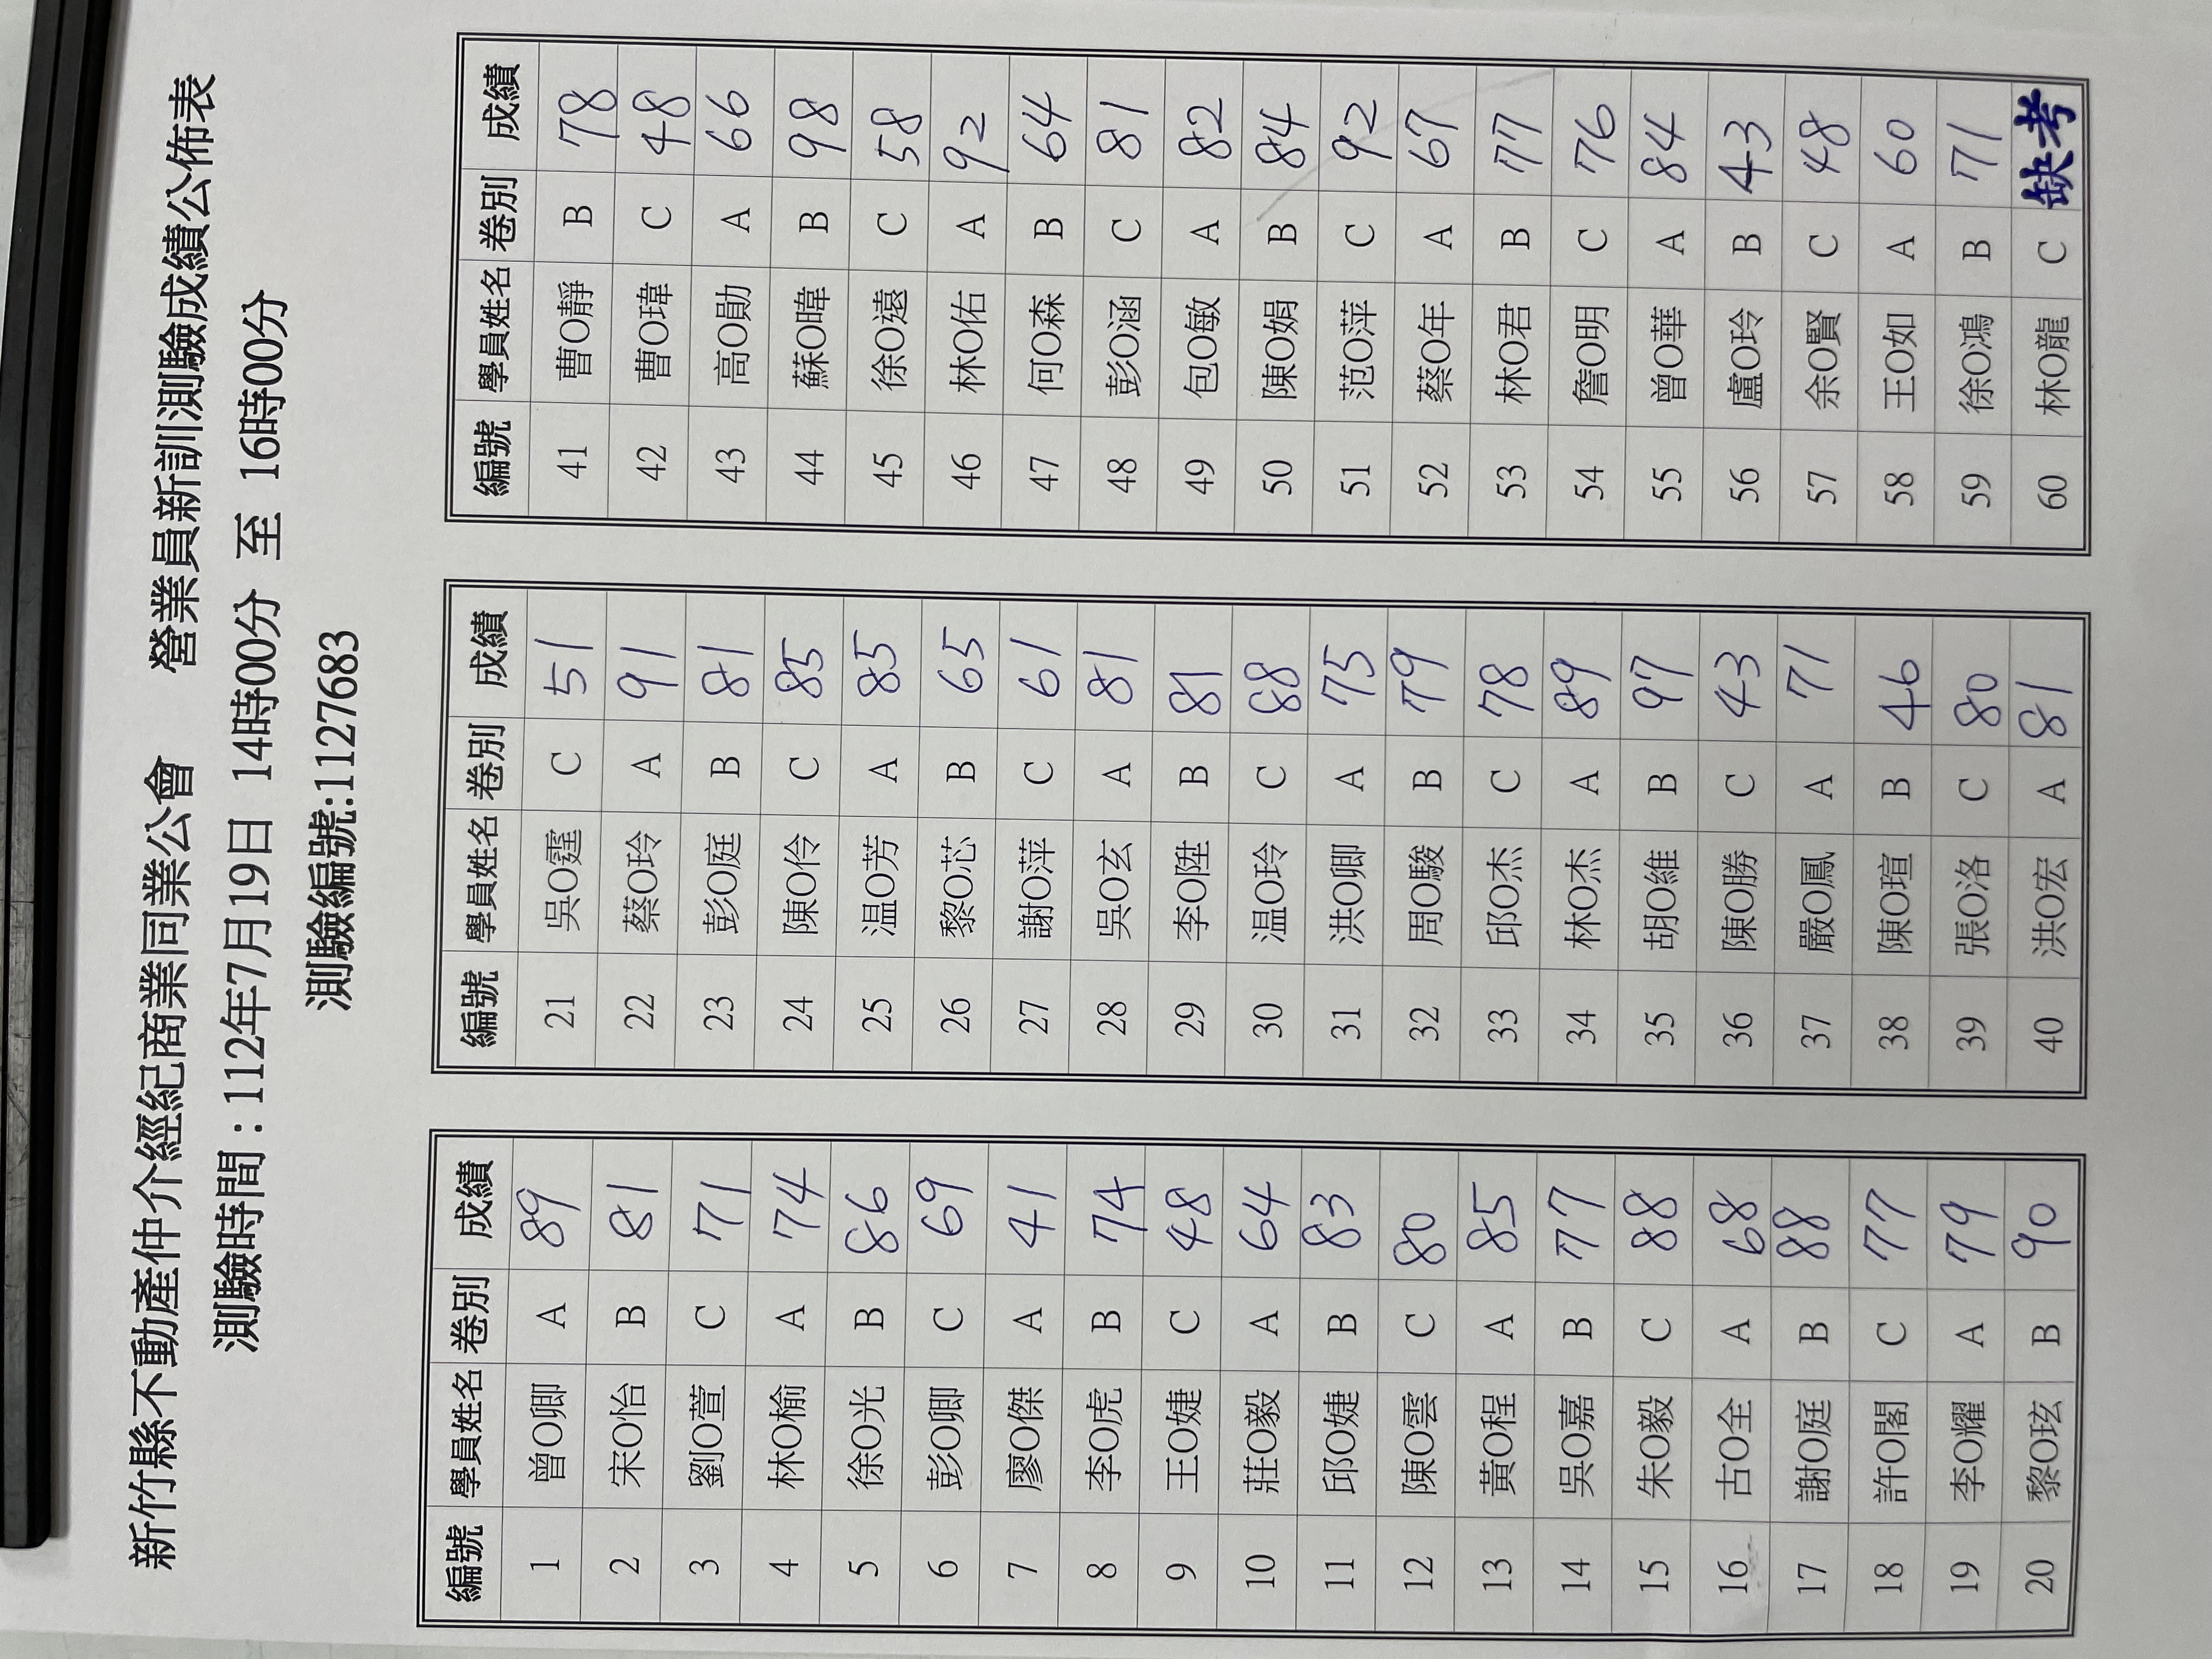 新竹縣不動產仲介經紀商業同業公會 營業員新訓測驗成績公佈表
測驗時間：112年7月19日 14時00分 至 16時00分
測驗編號:1127683
編號 學員姓名 卷別 成績
1 曾O卿 A 89
2 宋O怡 B 81
3 劉O萱 C 71
4 林O榆 A 74
5 徐O光 B 86
6 彭O卿 C 69
7 廖O傑 A 41
8 李O虎 B 74
9 王O婕 C 48
10 莊O毅 A 64
11 邱O婕 B 83
12 陳O雲 C 80
13 黃O程 A 85
14 吳O嘉 B 77
15 朱O毅 C 88
16 古O全 A 68
17 謝O庭 B 88
18 許O閣 C 77
19 李O耀 A 79
20 黎O玹 B 90
編號 學員姓名 卷別 成績
21 吳O霆 C 51
22 蔡O玲 A 91
23 彭O庭 B 81
24 陳O伶 C 85
25 温O芳 A 85
26 黎O芯 B 65
27 謝O萍 C 61
28 吳O玄 A 81
29 李O陞 B 81
30 温O玲 C 88
31 洪O卿 A 75
32 周O駿 B 79
33 邱O杰 C 78
34 林O杰 A 89
35 胡O維 B 97
36 陳O勝 C 43
37 嚴O鳳 A 71
38 陳O瑄 B 46
39 張O洛 C 80
40 洪O宏 A 81
編號 學員姓名 卷別 成績
41 曹O靜 B 78
42 曹O瑋 C 48
43 高O勛 A 66
44 蘇O暐 B 98
45 徐O遠 C 58
46 林O佑 A 92
47 何O森 B 64
48 彭O涵 C 81
49 包O敏 A 82
50 陳O娟 B 84
51 范O萍 C 92
52 蔡O年 A 67
53 林O君 B 77
54 詹O明 C 76
55 曾O華 A 84
56 盧O玲 B 43
57 余O賢 C 48
58 王O如 A 60
59 徐O鴻 B 71
60 林O龍 C 缺考